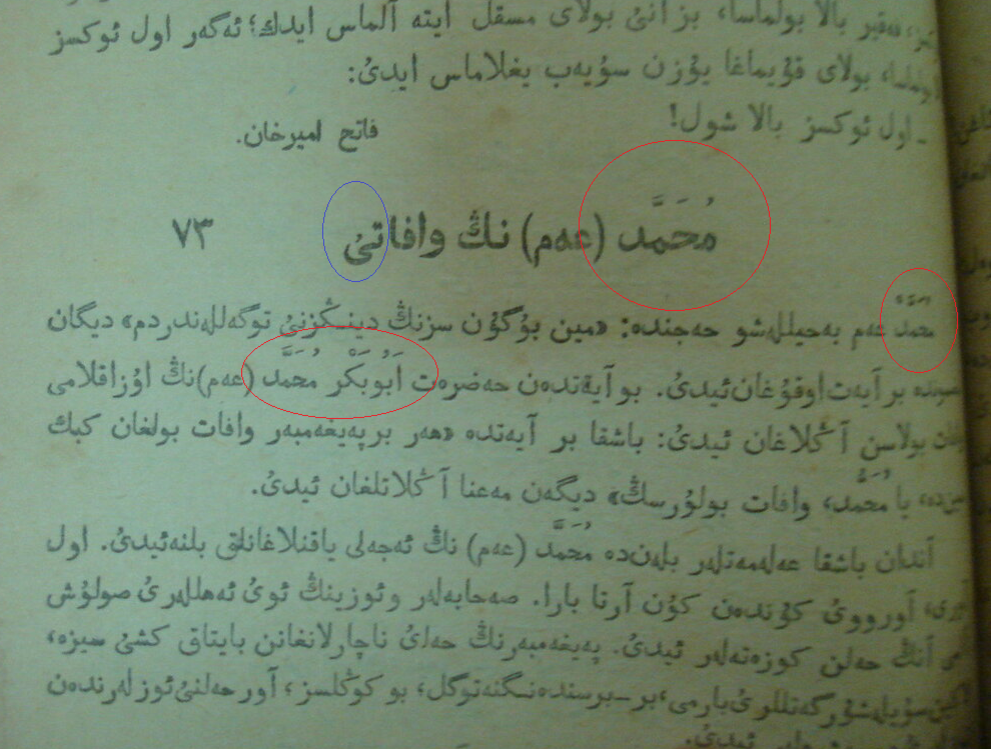 بالا بولماسا، بز آنئ بولای مسقل ایته آلماس ایدك؛ ئەگەر اول ئوکسز
بولای قۇیماغا یۇزن سۇیەب یغلاماس ایدئ:
ـ اول ئوکسز بالا شول!
فاتح امیرخان.
مُحَمَّد (عەم) نڭ وافاتئ ٧٣
محمَّد عەم بەحیللەشو حەجندە: «مین بۇگۇن سزنڭ دینـڭزنئ توگەللەندردم» دیگان
بر آیەت اوقۇغان ئیدئ. بو آیةندەن حەضرەت اَبُوبَكْر مُحَمَّد (عەم)نڭ اۇزاقلامی
بولاسن آڭلاغان ئیدئ: باشقا بر آیەتدە «هەر بر پەیغەمبەر وافات بولغان کبك
یا مُحَمَّد، وافات بولۇرسڭ» دیگەن مەعنا آڭلاتلغان ئیدئ.
آندان باشقا عەلەمەتلەر بلەندە مُحَمَّد (عەم) نڭ ئەجەلی یاقنلاغانلق بلنەئیدئ. اول
آورووئ کۇندەن کۇن آرتا بارا. صەحابەلەر وئوزینڭ ئوئ ئەهللەرئ صولۇش
آنڭ حەلن کوزەتەلەر ئیدئ. پەیغەمبەرنڭ حەلئ ناچارلانغانن بایتاق کشئ سیزە،
سۇیلەشۇرگەتللرئ بارمی، بر ـ برسندەنـگنەتوگل؛ بو کوڭلسز، آور حەلنئ ئوزلەرندەن
ئیدئ.